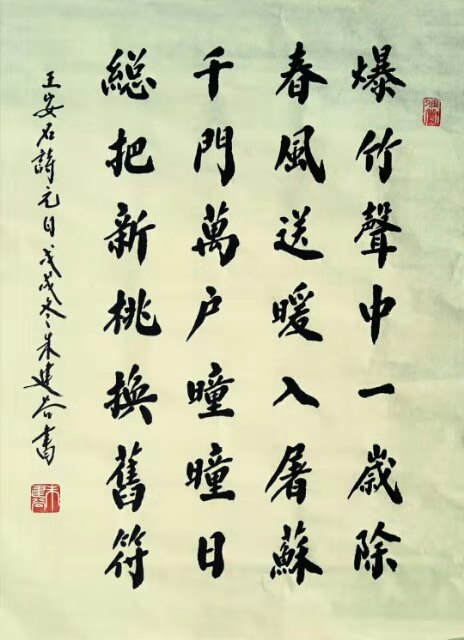 爆竹聲中一歲除
春風送暖入屠蘇
千門萬户曈曈日
總把新桃換舊符
王安石詩元日戊戌冬朱建谷書